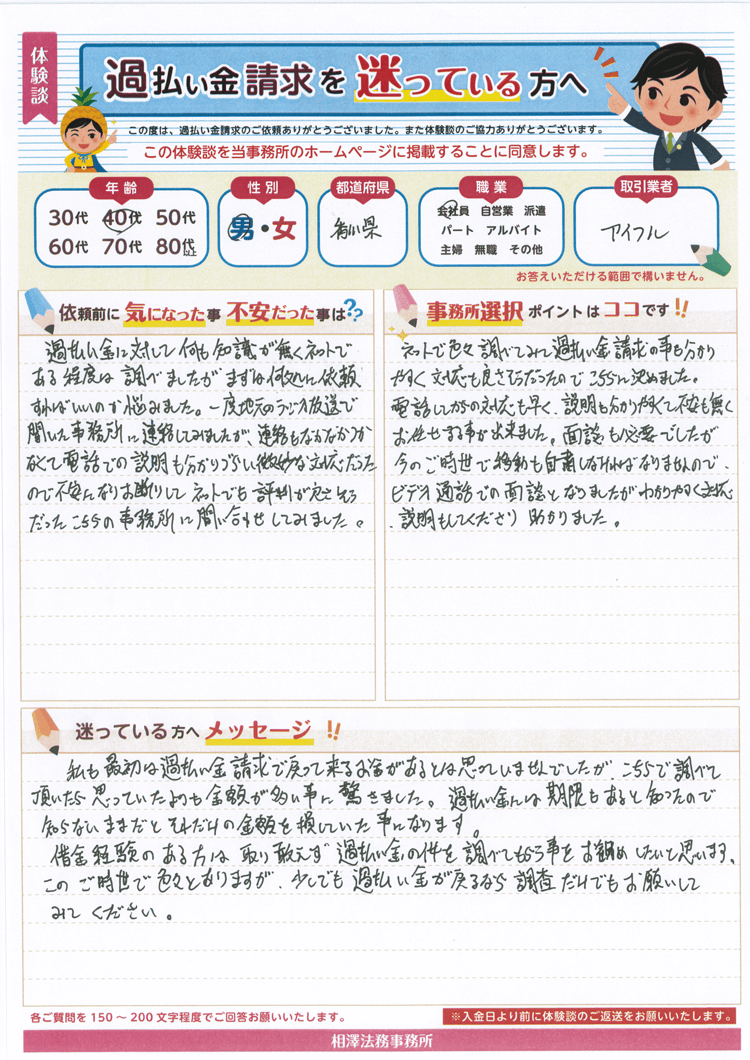 体験談
過払い金請求を迷っている方へ
この度は、過払い金請求のご依頼ありがとうございました。また体験談のご協力ありがとうございます。
この体験談を当事務所のホームページに掲載することに同意します。
年齢
30代 40代 50代
60代 70代 80代以上
性別
男・女
都道府県
香川県
職業
会社員 自営業 派遣
パート アルバイト
主婦 無職 その他
取引業者
アイフル
お答えいただける範囲で構いません。
依頼前に気になった事 不安だった事は??
過払い金に対して何も知識が無くネットで
ある程度は調べましたがまずは何処に依頼
すればいいのか悩みました。一度地元のラジオ放送で
聞いた事務所に連絡してみましたが、連絡もなかなかつか
なくて電話での説明も分かりづらい微妙な対応だった
ので不安になりお断りして ネットでも評判が良さそう
だったこちらの事務所に問い合せしてみました。
事務所選択ポイントはココです!!
ネットで色々調べてみて過払い金請求の事も分かり
やすく対応も良さそうだったのでこちらに決めました。
電話してからの対応も早く、説明も分かりやすくて不安も無く
お任せする事が出来ました。面談も必要でしたが
今のご時世で移動も自粛しなければなりませんので、
ビデオ通話での面談となりましたがわかりやすく対応
、説明もしてくださり助かりました。
迷っている方へメッセージ!!
私も最初は過払い金請求で戻って来るお金があるとは思っていませんでしたが、こちらで調べて
頂いたら思っていたよりも金額が多い事に驚きました。過払い金には期限もあると知ったので
知らないままだとそれだけの金額を損していた事になります。
借金経験のある方は取り敢えず過払い金の件を調べてもらう事をお勧めしたいと思います、
このご時世で色々とありますが、少しでも過払い金が戻るなら調査だけでもお願いして
みてください。
各ご質問を150～200文字程度でご回答お願いいたします。
※入金日より前に体験談のご返送をお願いいたします。
相澤法務事務所